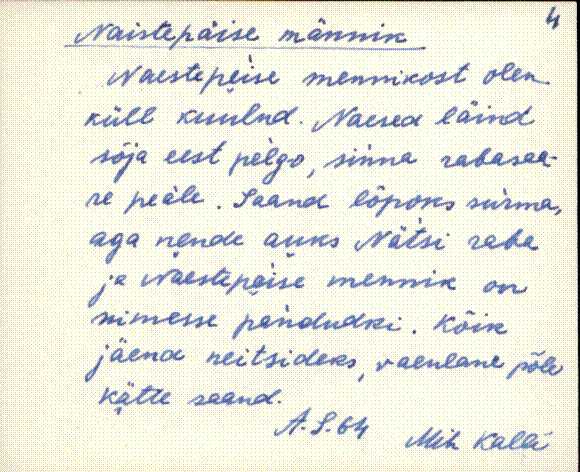 4
Naistepäise männik
Naestepeise mennikost olen
küll kuulnd. Naesed läind
sõja eest pelgo, sinna rabasaa-
re peäle. Saand lõpoks surma,
aga nende auks Nätsi raba
ja Naestepeise mennik on
nimesse pandudki. Kõik
jäend neitsideks, vaenlane põle
kätte saand.
A.S. 64
Mih Kallä